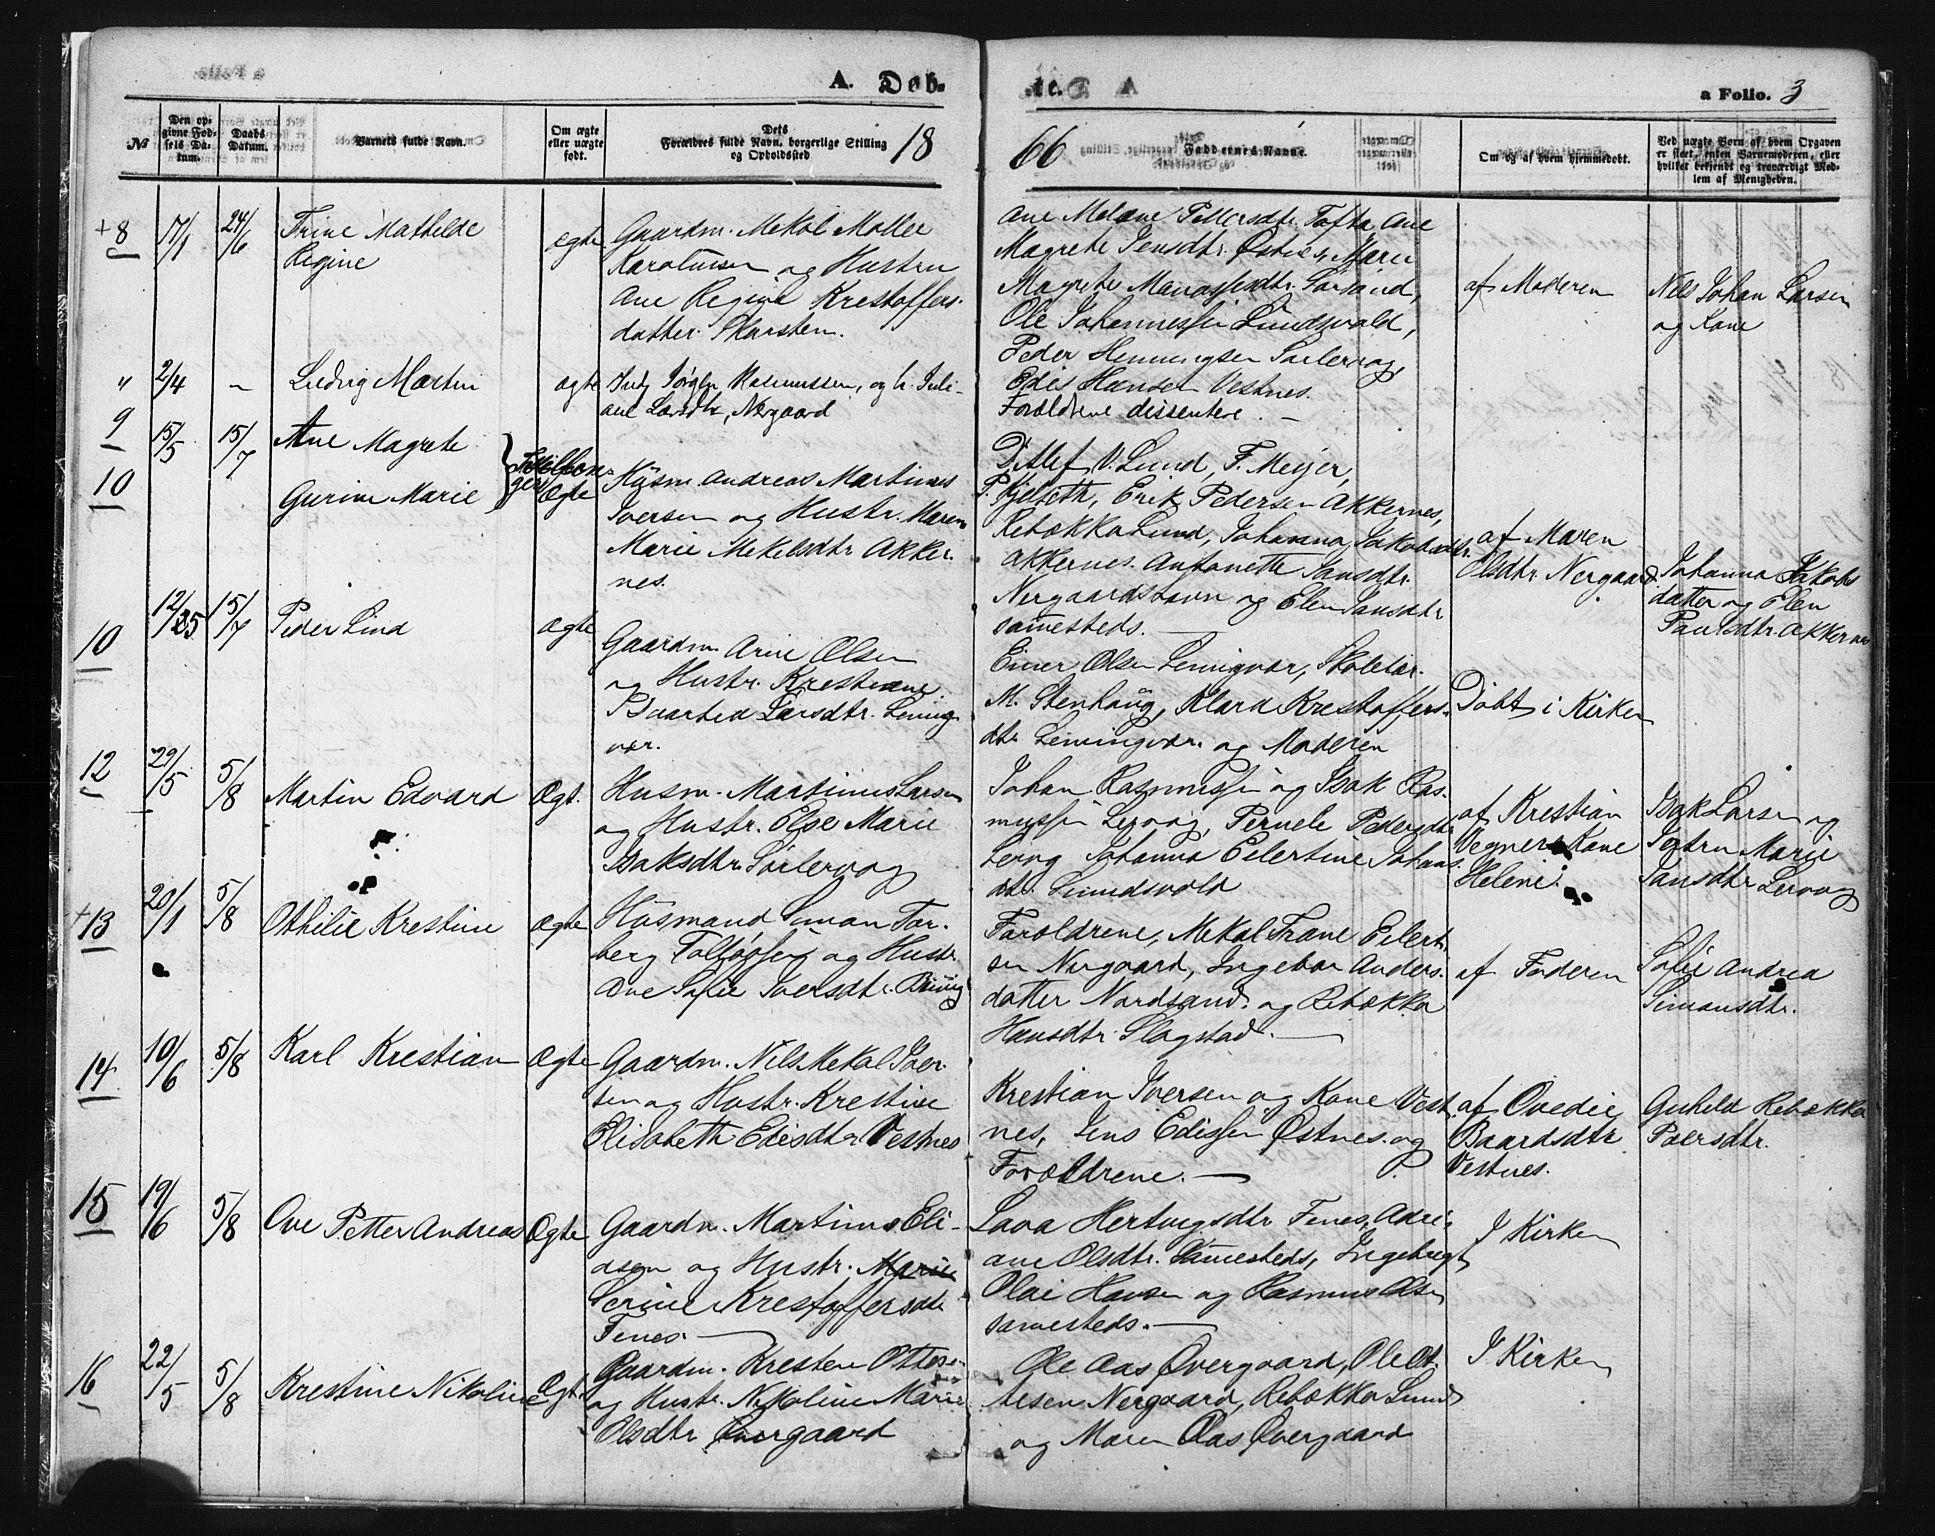 A. Døb-
te.
a Folio. 3
№
Den op-
givne Fød-
sels Da-
tum.
Daabs
Datum.
Barnets fulde Navn.
Om ægte
eller uægte
født.
Dets
Forældres fulde Navn, borgerlige Stilling
og Opholdssted
18
66
Faddernes Navne.
Om og af hvem hjemmedøbt.
Ved uægte Børn af hvem Opgaven
er skeet, enten Barnemoderen, eller
hvilket bekjendt og troværdigt Med-
lem af Menigheden.
+8 17/1 24/6 Trine Mathilde
Regine
ægte
Gaardm. Mekal Møller
Karolusen og Hustru
Ane Regine Krestoffers-
datter Skarsten.
Ane Malene Pettersdtr. Tofta, Ane
Magrete Jensdtr. Østnes, Maren
Magrete Manassesdtr.
Ole Johannessen Sundsvold,
Peder Henningsen Sørlevog,
Edis Hansen Vestnes.
af Moderen
Nils Johan Larsen
og Kone
" 2/4 – Ludvig Martin
ægte
Indr Jørgen Rasmussen, og h. Juli-
ane Larsdtr, Nergaard
Forældrene dissentere. –
9 15/5 15/7 Ane Magrete
10 Gurine Marie
Tvillin-
ger
Ægte
Husm. Andreas Martinus
Iversen og Hustr. Maren
Marie Mekelsdtr Akker-
nes.
Ditlef V. Lund, F. Meyer,
P. Kjelseth, Erik Pedersen Akkernes,
Rebekka Lund, Johanna Jakobsdtr.
Akkernes. Antonette Jansdtr.
Nergaardshavn og Elen Jansdtr
samesteds. –
af Maren
Olsdtr Nergaard
Johanna Jakobs
datter og Elen
Paulsdtr. Akkernes
10 12/35 15/7 Peder Lind
ægte
Gaardm. Arne Olsen
og Hustr. Krestiane
Baartea Larsdtr. Leming-
vær.
Einer Olsen Lemingvær, Skolelær.
M. Stenhaug, Klara Krestoffers-
dtr Lemingvær. og Moderen
Døbt i Kirken
12 29/5 5/8 Martin Edvard
Ægt.
Husm. Martinus Larsen
og Hustr. Else Marie
Isaksdtr. Sørlevog
Johan Rasmussen og Isak Ras-
mussen Levog, Pernele Pedersdtr
Levog Johanna Eilertine Johans-
dtr. Sundsvold
af Krestian
Vegners Kone
Helene.
Isak Larsen og
Marie
Jansdtr Levog
+13 20/1 5/8 Othilie Krestine
Ægte
Husmand Simon Tor-
berg Tollefsen og Hustr.
Ane Sofie Iversdtr.
Forældrene, Mekal Trane Eilert-
sen Nergaard, Ingebor Anders-
datter Nordsand. og Rebekka
Hansdtr. Slagstad. –
af Faderen
Sofie Andrea
Simonsdtr.
14 10/6 5/8 Karl Krestian
Ægte
Gaardm. Nils Mekal Iver-
sen og Hustr. Krestine
Elisabeth Edisdtr Vestnes
Krestian Iversen og Kone Vest-
nes, Jens Edissen Østnes. og
Forældrene. –
af Ovedie
Baardsdtr
Vestnes.
Guhild Rebekka
Paersdtr.
15 19/6 5/8 Ove Petter Andreas
Ægte
Gaardm. Martinus Eli-
asen og Hustr. Marie
Serine Krestoffersdtr
Fenes. –
Lava Hertvigsdtr Fenes, Adri-
ane Olsdtr. samesteds, Ingebregt
Olai Hansen og Rasmus Olsen
samesteds. –
I Kirken
16 22/5 5/8 Krestine Nikoline
Ægt.
Gaardm. Kresten Ottesen
og Hustr. Nikoline Marie
Olsdtr Øvergaard
Ole Aas Øvergaard, Ole Ot-
tesen Nergaard, Rebekka Lund
og Maren Aas Øvergaard
I Kirken